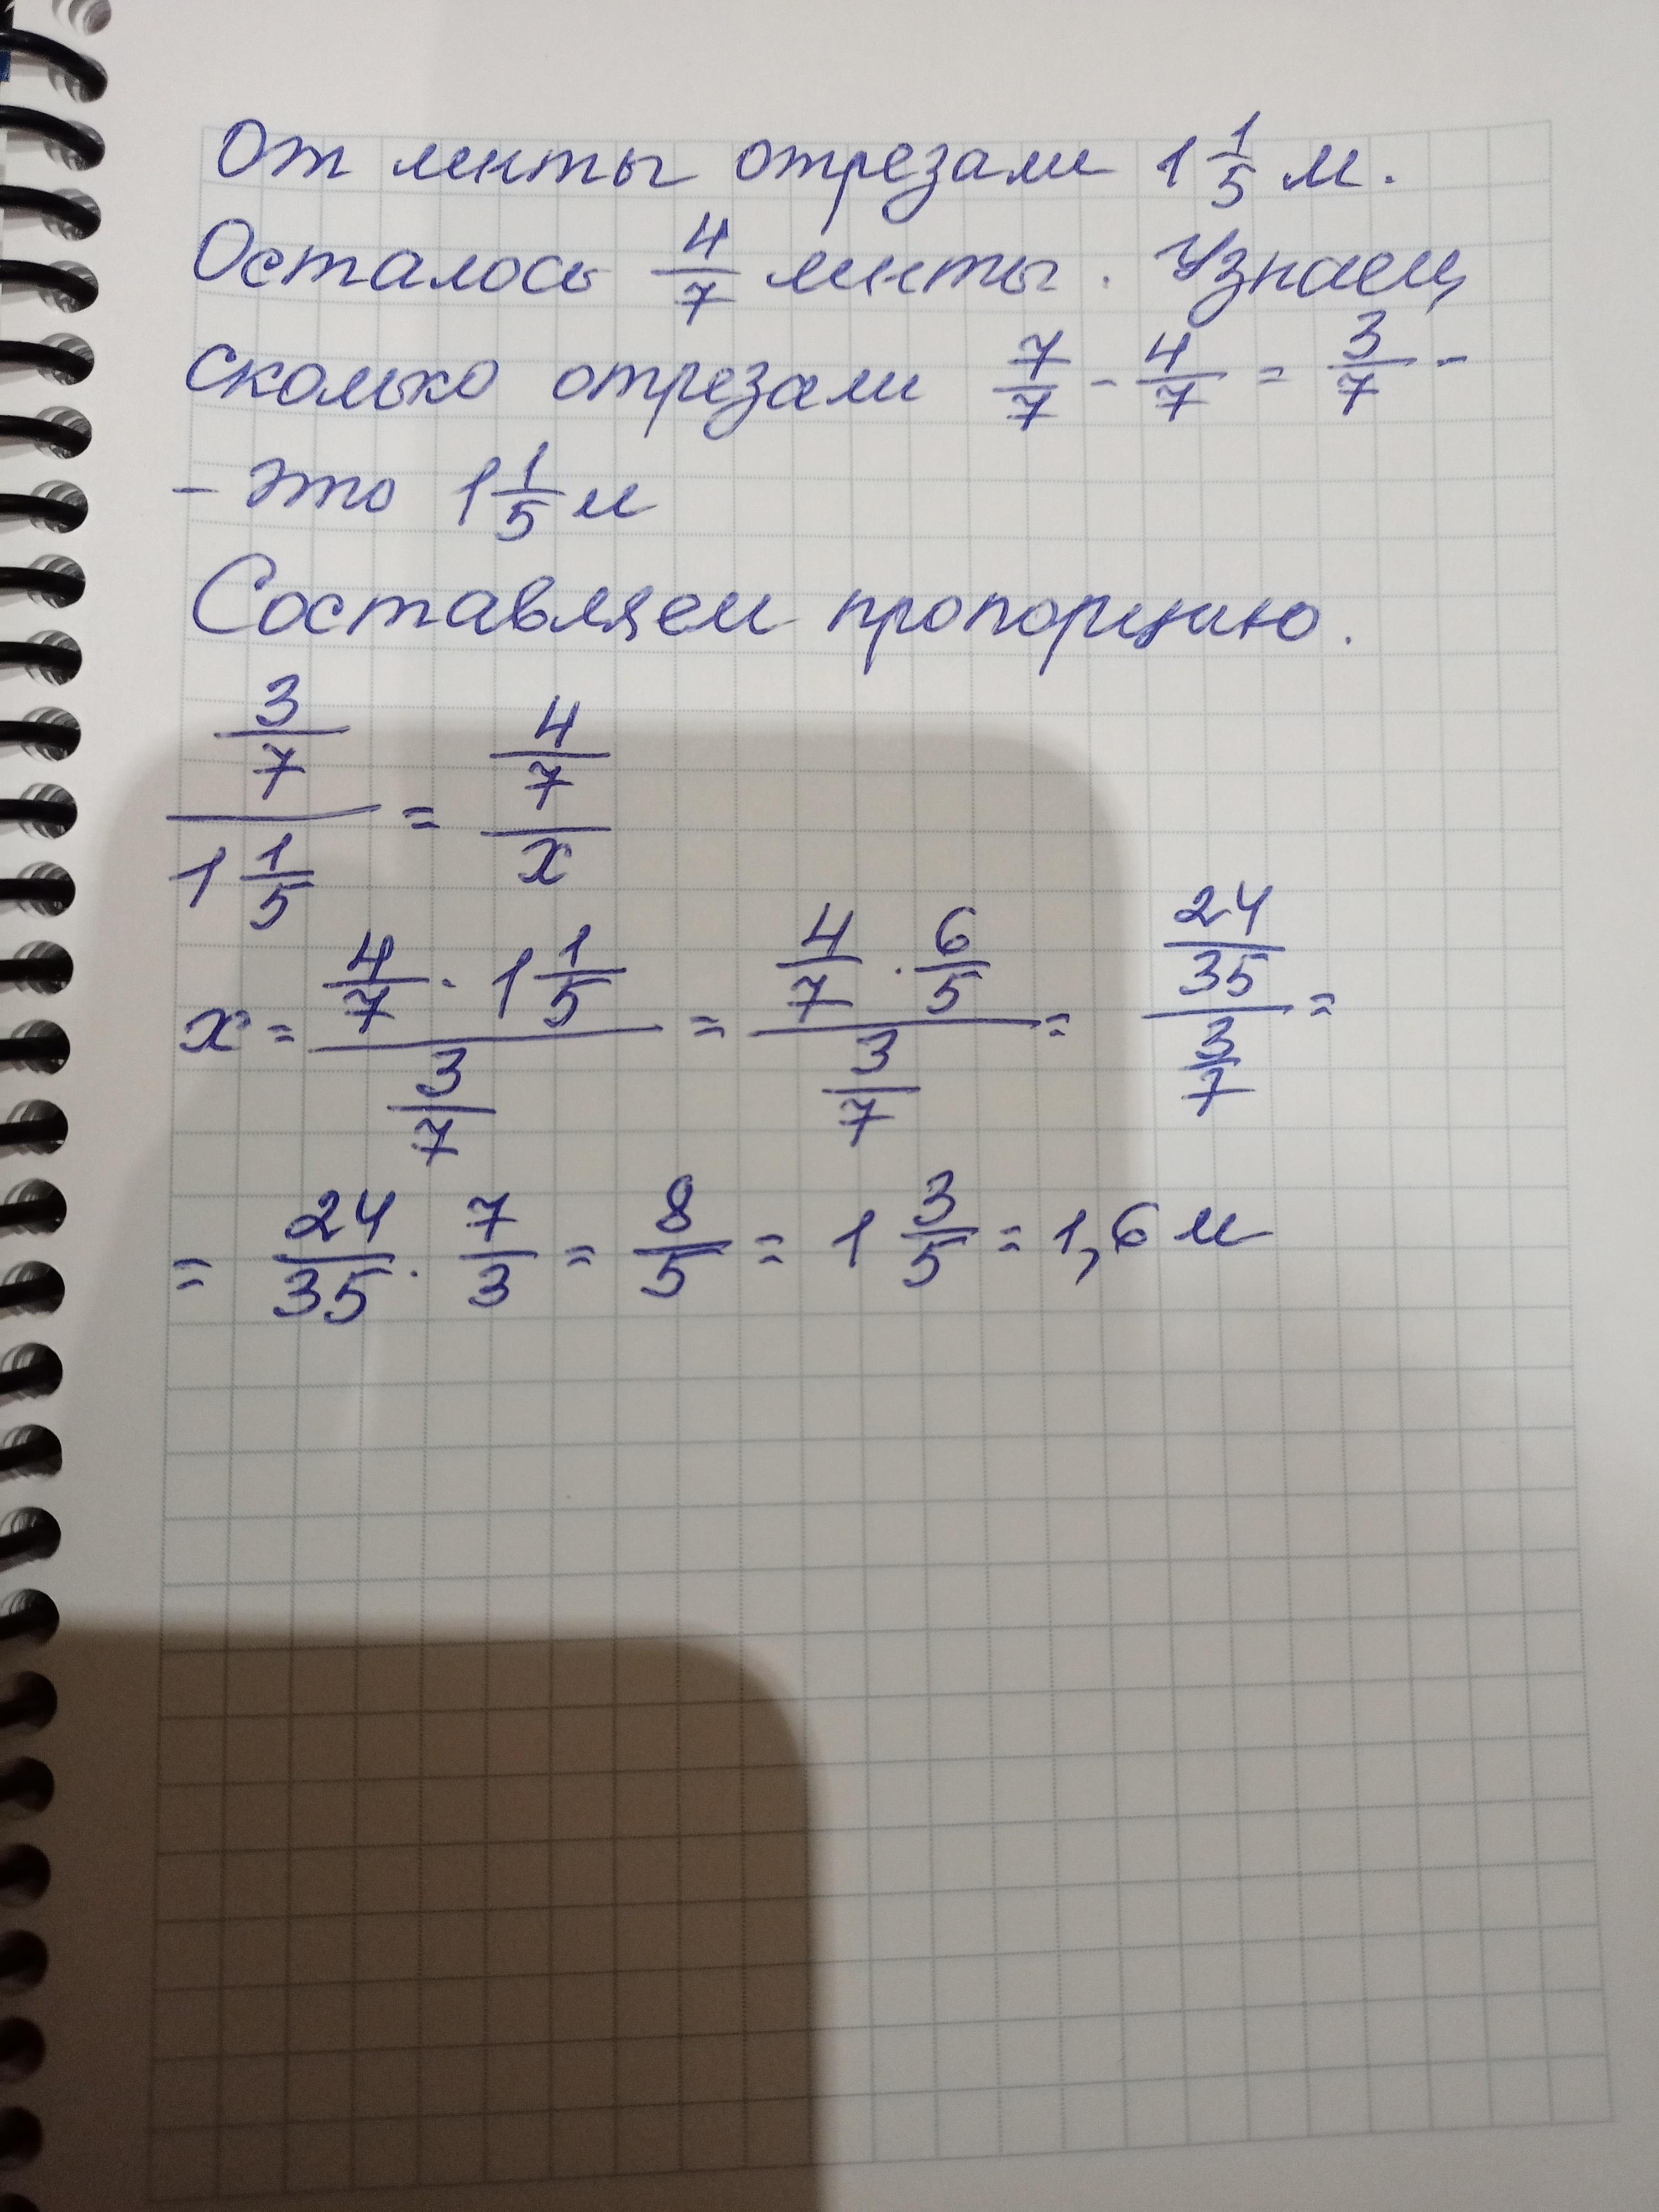 От ленты отрезали 1 1/5 м.
Осталось 4/7 ленты. Узнаем,
сколько отрезали 7/7 - 4/7 = 3/7 -
- это 1 1/5 м
Составляем пропорцию.
(3/7)/(1 1/5) = (4/7)/x
x = (4/7 · 1 1/5)/(3/7) = (4/7 · 6/5)/(3/7) = (24/35)/(3/7) =
= 24/35 · 7/3 = 8/5 = 1 3/5 = 1,6 м